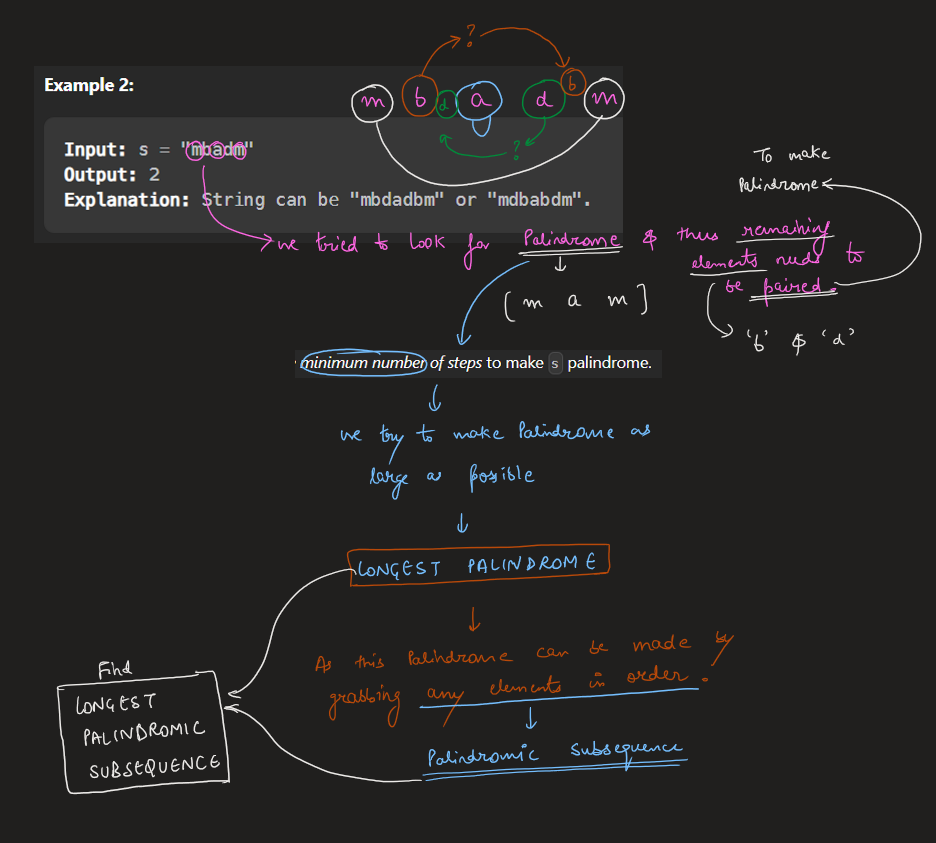 ?
Example 2:
m b d a d b m
?
Input: s = "mbadm"
Output: 2
Explanation: String can be "mbdadbm" or "mdbabdm".
To make
Palindrome
we tried to look for Palindrome & thus remaining
elements needs to
be paired.
[ m a m ]
'b' & 'd'
minimum number of steps to make s palindrome.
we try to make Palindrome as
large as possible
LONGEST PALINDROME
As this Palindrome can be made by
grabbing any elements in order.
Find
LONGEST
PALINDROMIC
SUBSEQUENCE
Palindromic Subsequence